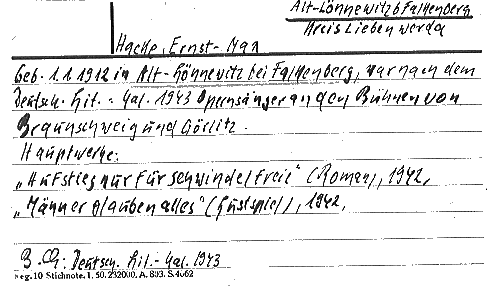 Alt-Lönnewitz b Falkenberg
Kreis Liebenwerda
Hacke, Ernst-Max
Geb. 1.1.1912 in Alt-Lönnewitz bei Falkenberg, war nach dem
Deutsch. Lit.-Kal. 1943 Opernsänger an den Bühnen von
Braunschweig und Görlitz.
Hauptwerke:
„Aufstieg nur für Schwindelfreie" (Roman), 1942,
„Männer glauben alles" (Lustspiel), 1942,
Deutsch. Lit.-Kal. 1943
Reg. 10 Stichnote. 1. 50. 232000. A. 803. S. 4062